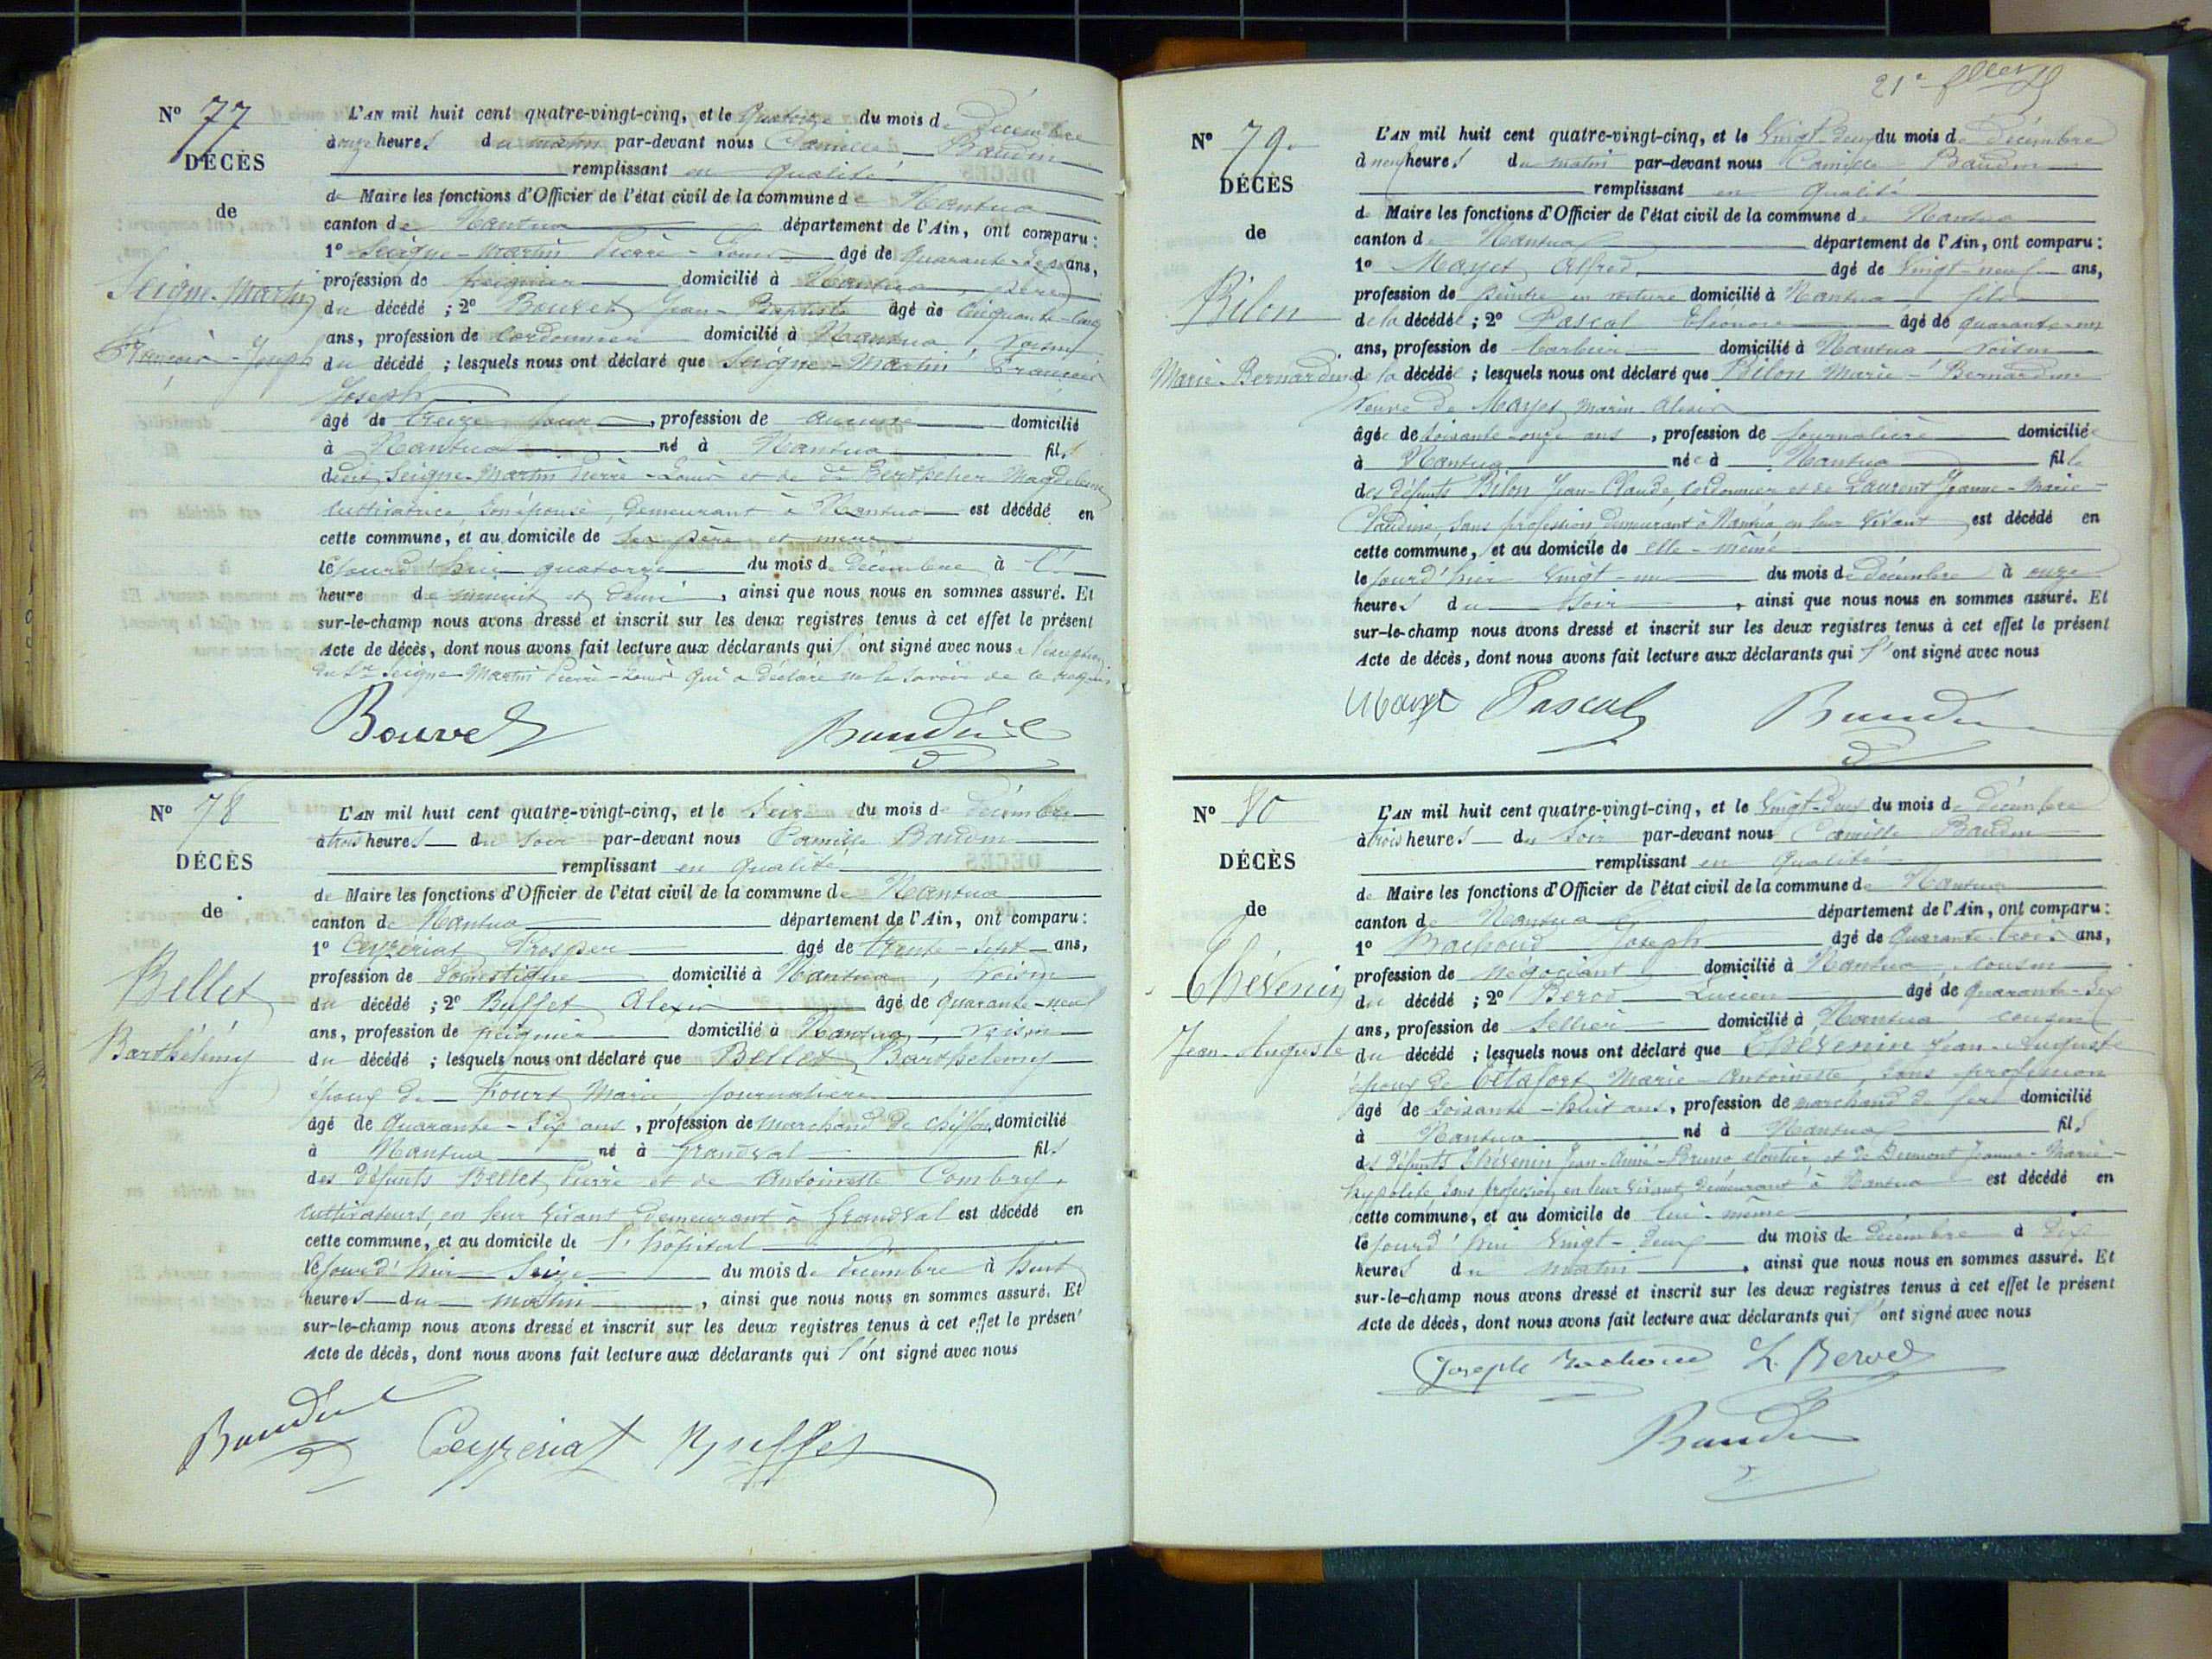 Nº 77
DÉCÈS
de
Seigne-Martin
François-Joseph
L'AN mil huit cent quatre-vingt-cinq, et le Quatorze du mois de Décembre
à onze heures du matin par-devant nous Camille Baudin
remplissant en qualité
de Maire les fonctions d'Officier de l'état civil de la commune de Nantua
canton de Nantua département de l'Ain, ont comparu :
1º Seigne-Martin Pierre-Louis âgé de quarante-sept ans,
profession de peignier domicilié à Nantua, père
du décédé ; 2º Bouvet Jean-Baptiste âgé de Cinquante-cinq
ans, profession de Cordonnier domicilié à Nantua, voisin
du décédé ; lesquels nous ont déclaré que Seigne-Martin François
Joseph
âgé de treize jours, profession de aucune domicilié
à Nantua né à Nantua fils
dudit Seigne-Martin Pierre-Louis et de de Berthelier Magdeleine
cultivatrice, son épouse, demeurant à Nantua est décédé en
cette commune, et au domicile de ses père et mère
le jourd'hui quatorze du mois de décembre à l'
heure de minuit et demi, ainsi que nous nous en sommes assuré. Et
sur-le-champ nous avons dressé et inscrit sur les deux registres tenus à cet effet le présent
Acte de décès, dont nous avons fait lecture aux déclarants qui l'ont signé avec nous à l'exception
du Sr Seigne-Martin Pierre-Louis qui a déclaré ne le savoir de ce requis
Bouvet Baudin
Nº 78
DÉCÈS
de
Bellet
Barthélemy
L'AN mil huit cent quatre-vingt-cinq, et le Seize du mois de Décembre
à trois heures du soir par-devant nous Camille Baudin
remplissant en qualité
de Maire les fonctions d'Officier de l'état civil de la commune de Nantua
canton de Nantua département de l'Ain, ont comparu :
1º Ceyzeriat Prosper âgé de trente-sept ans,
profession de Domestique domicilié à Nantua, voisin
du décédé ; 2º Buffet Alexis âgé de quarante-neuf
ans, profession de peignier domicilié à Nantua, voisin
du décédé ; lesquels nous ont déclaré que Bellet Barthélemy
époux de Fourt Marie, journalière
âgé de Quarante-six ans, profession de marchand de chiffon domicilié
à Nantua né à Grandval fils
des défunts Bellet Pierre et de Antoinette Combry,
cultivateurs, en leur vivant demeurant à Grandval est décédé en
cette commune, et au domicile de l'hôpital
le jourd'hui Seize du mois de décembre à huit
heures du matin, ainsi que nous nous en sommes assuré. Et
sur-le-champ nous avons dressé et inscrit sur les deux registres tenus à cet effet le présent
Acte de décès, dont nous avons fait lecture aux déclarants qui l'ont signé avec nous
Baudin Ceyzeriat Buffet
21e
Nº 79.
DÉCÈS
de
Bilon
Marie-Bernardine
L'AN mil huit cent quatre-vingt-cinq, et le Vingt-deux du mois de Décembre
à neuf heures du matin par-devant nous Camille Baudin
remplissant en qualité
de Maire les fonctions d'Officier de l'état civil de la commune de Nantua
canton de Nantua département de l'Ain, ont comparu :
1º Mayet Alfred âgé de Vingt-neuf ans,
profession de peintre en voiture domicilié à Nantua fils
de la décédée ; 2º Pascal Eléonor âgé de quarante-un
ans, profession de barbier domicilié à Nantua voisin
de la décédée ; lesquels nous ont déclaré que Bilon Marie-Bernardine
Veuve de Mayet Marin-Alexis
âgée de soixante-onze ans, profession de journalière domiciliée
à Nantua née à Nantua fille
des défunts Bilon Jean-Claude, cordonnier et de Laurent Jeanne-Marie-
Claudine, sans profession demeurant à Nantua en leur vivant est décédé en
cette commune, et au domicile de elle-même
le jourd'hier Vingt-un du mois de décembre à onze
heures du soir, ainsi que nous nous en sommes assuré. Et
sur-le-champ nous avons dressé et inscrit sur les deux registres tenus à cet effet le présent
Acte de décès, dont nous avons fait lecture aux déclarants qui l'ont signé avec nous
Mayet Pascal Baudin
Nº 80
DÉCÈS
de
Thévenin
Jean-Auguste
L'AN mil huit cent quatre-vingt-cinq, et le Vingt-deux du mois de décembre
à trois heures du soir par-devant nous Camille Baudin
remplissant en qualité
de Maire les fonctions d'Officier de l'état civil de la commune de Nantua
canton de Nantua département de l'Ain, ont comparu :
1º Bachoud Joseph âgé de Quarante-trois ans,
profession de négociant domicilié à Nantua, cousin
du décédé ; 2º Berod Lucien âgé de quarante-six
ans, profession de Sellier domicilié à Nantua cousin
du décédé ; lesquels nous ont déclaré que Thévenin Jean-Auguste
époux de Tétafort Marie-Antoinette, sans profession
âgé de soixante-huit ans, profession de marchand de fer domicilié
à Nantua né à Nantua fils
des défunts Thévenin Jean-Aimé-Bruno cloutier et de Dumont Jeanne-Marie-
hypolite, sans profession, en leur vivant demeurant à Nantua est décédé en
cette commune, et au domicile de lui-même
le jourd'hui Vingt-deux du mois de décembre à dix
heures du matin, ainsi que nous nous en sommes assuré. Et
sur-le-champ nous avons dressé et inscrit sur les deux registres tenus à cet effet le présent
Acte de décès, dont nous avons fait lecture aux déclarants qui l'ont signé avec nous
Joseph Bachoud L. Berod
Baudin